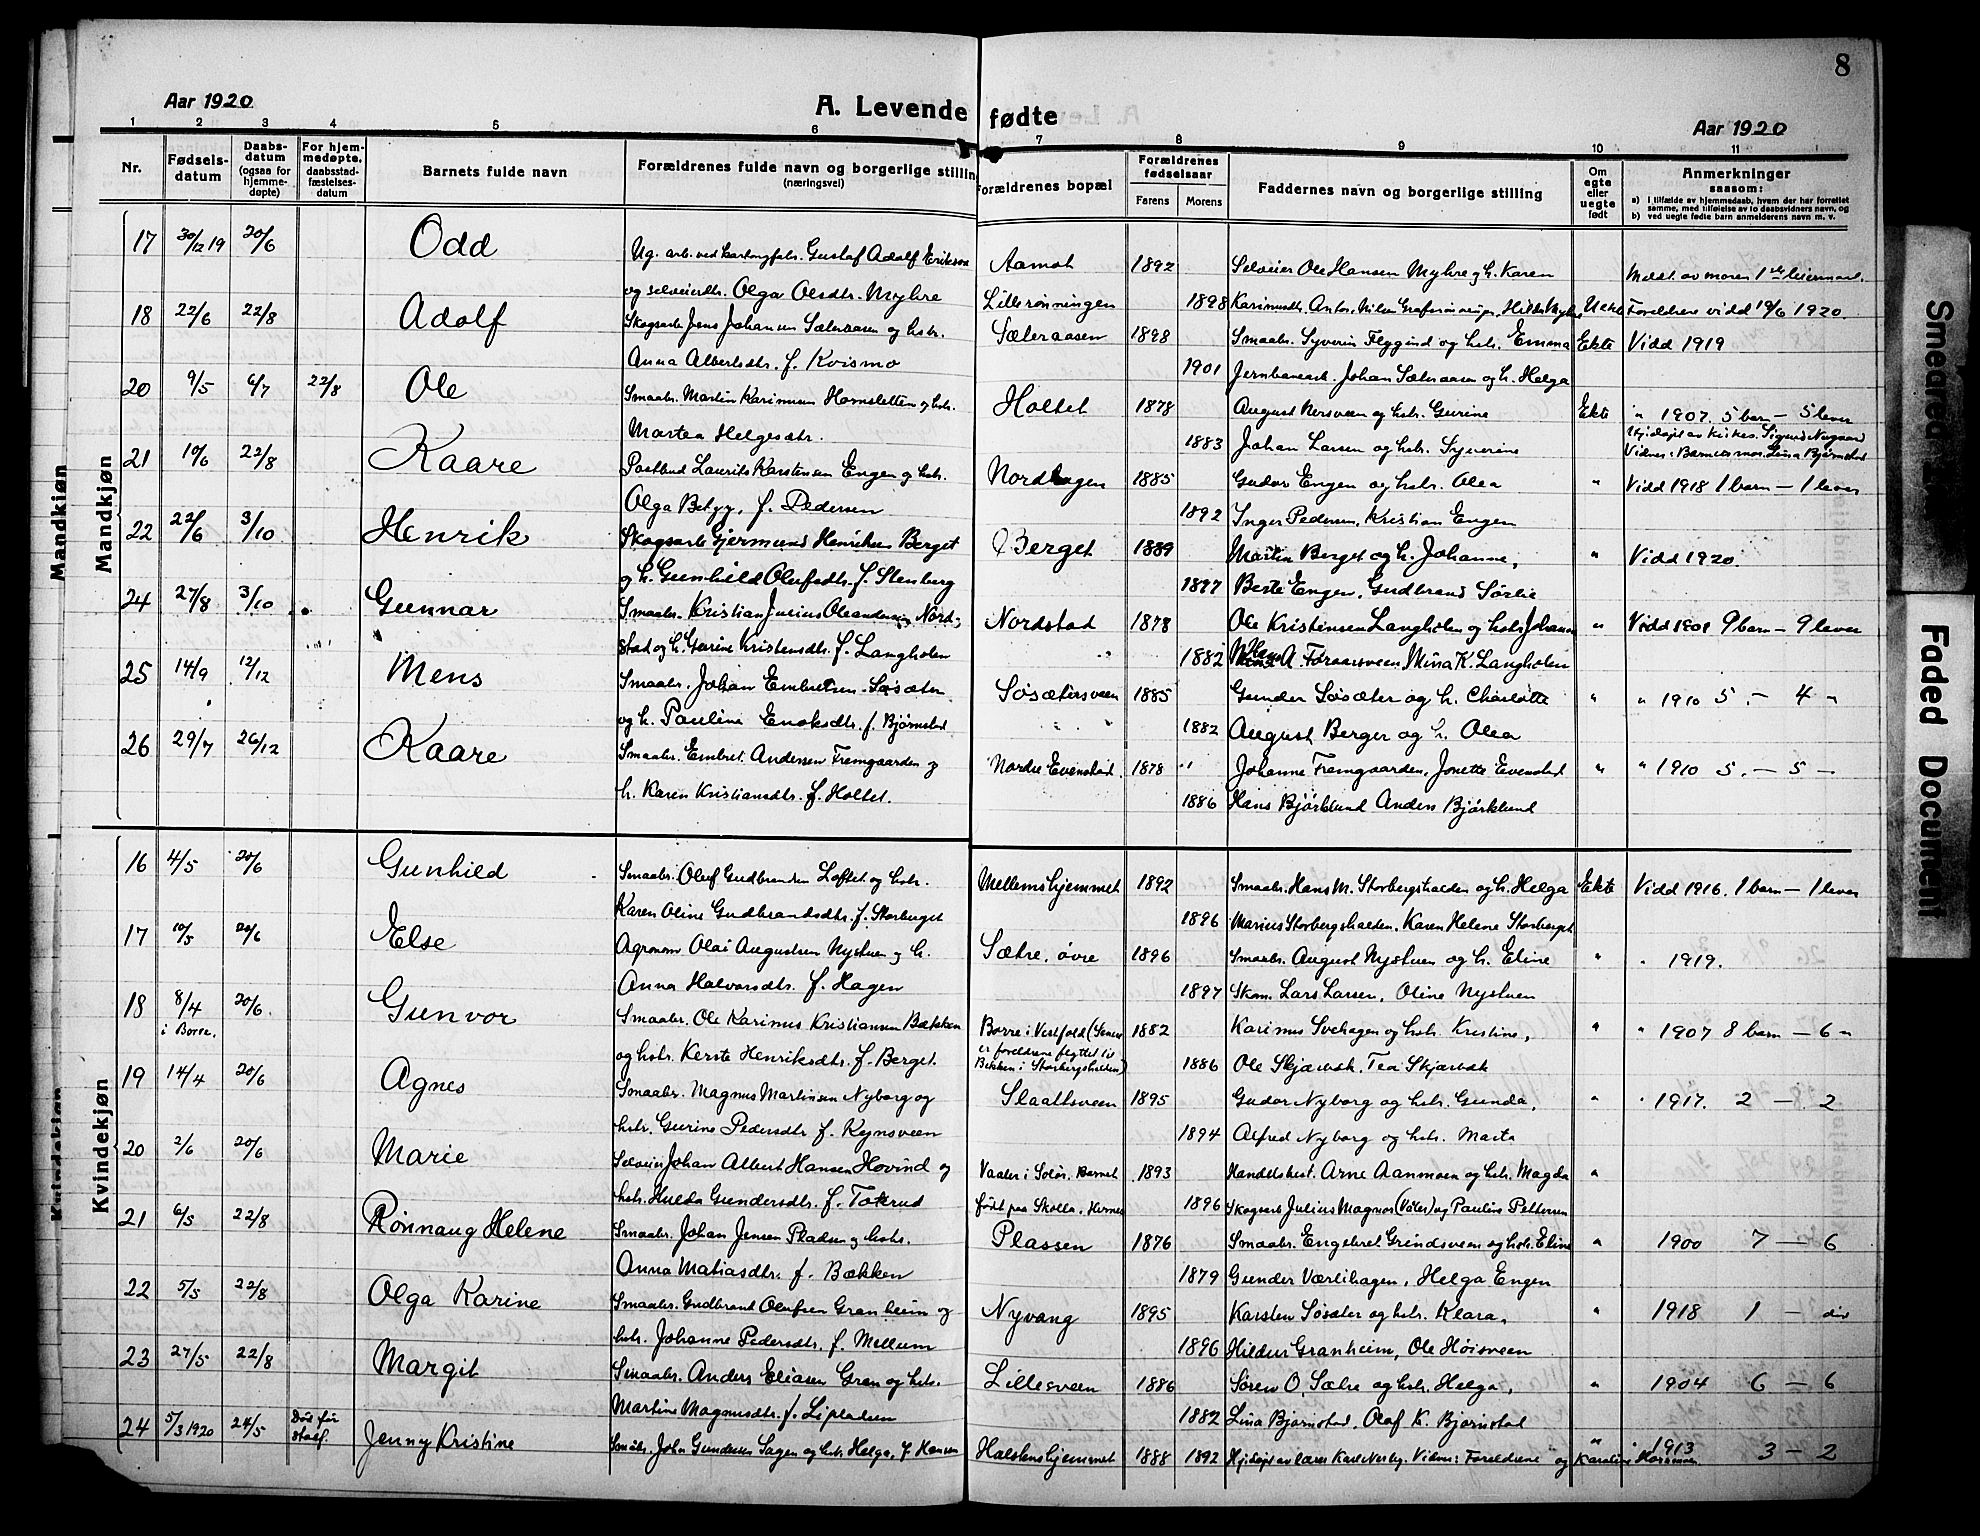 8
Aar 1920
A. Levende fødte
Aar 1920
1 2 3 4 5 6 7 8 9 10 11
Nr.
Fødsels-
datum
Daabs-
datum
(ogsaa for
hjemme-
døpte)
For hjem-
medøpte,
daabsstad-
fæstelses-
datum
Barnets fulde navn
Forældrenes fulde navn og borgerlige stilling
(næringsvei)
Forældrenes bopæl
Forældrenes
fødselsaar
Farens Morens
Faddernes navn og borgerlige stilling
Om
egte
eller
uegte
født
Anmerkninger
saasom:
a) i tilfælde av hjemmedaab, hvem der har forrettet
samme, med tilføielse av to daabsvidners navn, og
b) ved uegte fødte barn anmelderens navn m. v.
Mandkjøn
Mandkjøn
17 30/12 19 20/6 Odd Ug. arb. ved kartongfabr. Gustaf Adolf Erikson Aamot 1892 Selveier Ole Hansen Myhre og h. Karen Meldt av moren 1ste leiermaal.
og selveierdtr. Olga Olsdtr. Myhre Lillerønningen 1898 Uekte Foreldrene vidd 19/6 1920.
18 22/6 22/8 Adolf Skogsarb. Jens Johansen Sæteraasen og hstr. Sæteraasen 1898 Smaabr. Syverin Flygind og hstr. Emma Ekte Vidd 1919
Anna Albertsdtr. f. Kvismo 1901 Jernbanearb. Johan Sæteraasen og h. Helga
20 9/5 6/7 22/8 Ole Smaabr. Martin Karinusen Hornsletten og hstr. Holtet 1878 August Nersveen og hstr. Gurine Ekte " 1907. 5 barn – 5 lever
Martea Helgesdtr. 1883 Johan Larsen og hstr. Syverine Hj.døpt av kirkes. Sigurd Nygaard
Vidner: Barnets mor, Lina Bjørnstad
21 10/6 22/8 Kaare Postbud Laurits Karstensen Engen og hstr. Nordhagen 1885 Gudor Engen og hstr. Olea " Vidd 1918 1 barn – 1 lever
Olga Betzy, f. Pedersen 1892 Inger Pedersen, Kristian Engen
22 22/6 3/10 Henrik Skogsarb. Gjermund Henriksen Berget Berget 1889 Martin Berget og h. Johanne, " Vidd 1920.
og h. Gunhild Olufsdtr. f. Stenberg 1897 Berte Engen, Gudbrand Sørlie
24 27/8 3/10 Gunnar Smaabr. Kristian Julius Oleandersen Nord- Nordstad 1878 Ole Kristensen Langholen og hstr. Johanne " Vidd 1901 9 barn – 9 lever
stad og h. Gurine Kristensdtr. f. Langholen " 1882 A. Foraarsveen, Mina K. Langholen
25 14/9 12/12 Mens Smaabr. Johan Embretsen Søsæter Søsætersveen 1885 Gunder Søsæter og h. Charlotte " " 1910 5. – 4 "
og h. Pauline Enoksdtr. f. Bjørnstad " " 1882 August Berger og h. Olea
26 29/7 26/12 Kaare Smaabr. Embret Andersen Fremgaarden og Nordre Evenstad. 1878 " Johanne Fremgaarden, Jonette Evenstad " " 1910 5. – 5 –
h. Karen Kristiansdtr. f. Holtet. 1886 Hans Bjørklund Anders Bjørklund
Kvindekjøn
Kvindekjøn
16 4/5 20/6 Gunhild Smaabr. Oluf Gudbrandsen Loftet og hstr. Mellemshjemmet 1892 Smaabr. Hans M. Storbergshalden og h. Helga Ekte Vidd 1916. 1 barn – 1 lever
Karen Oline Gudbrandsdtr. f. Storberget 1896 Marius Storbergshalden, Karen Helene Storberget
17 10/5 20/6 Else Agronom Olai Augustsen Nystuen og h. Sætre, øvre 1896 Smaabr. August Nystuen og h. Eline " " 1919.
Anna Halvorsdtr. f. Hagen 1897 Skom. Lars Larsen, Oline Nystuen
18 8/4 20/6. Gunvor Smaabr. Ole Karinus Kristiansen Bækken Borre i Vestfold (Senere 1882 Karinus Svehagen og hstr. Kristine, " " 1907 8 barn – 6 "
i Borre. og hstr. Kerste Henriksdtr. f. Berget. er foreldrene flyttet til 1886 Ole Skjærbæk, Tea Skjærbæk
Bekken i Storbergshalden)
19 14/4 20/6 Agnes Smaabr. Magnus Martinsen Nyborg og Slaattsveen 1895 Gudor Nyborg og hstr. Gunda, " " 1917. 2 – 2
hstr. Gurine Pedersdtr. f. Kynsveen 1894 Alfred Nyborg og hstr. Marta
20 2/6 20/6 Marie Selveier Johan Albert Hansen Hovind og Vaaler i Solør. Barnet 1893 Handelsbest. Arne Aanmoen og hstr. Magda "
hstr. Hulda Gundersdtr. f. Tokrud født paa Skolla. Hernes 1896 Skogsarb. Julius Magnor (Våler) og Pauline Pettersen
21 6/5 22/8 Rønnaug Helene Smaabr. Johan Jensen Pladsen og hstr. Plassen 1876 Smaabr. Engebret Grindsveen og hstr. Eline " 1900 7 – 6
Anna Matiasdtr. f. Bækken 1879 Gunder Værlihagen, Helga Engen
22 5/5 22/8 Olga Karine Smaabr. Gudbrand Olufsen Granheim og Nyvang 1895 Karsten Søsæter og hstr. Klara, " 1918 1 –
hstr. Johanne Pedersdtr. f. Mellum 1896 Hildur Granheim, Ole Høisveen
23 27/5 22/8 Margit Smaabr. Anders Eliasen Gran og hstr. Lillesveen 1886 Søren O. Sætre og hstr. Helga, " 1904 6 – 6
Martine Magnusdtr. f. Lipladsen 1882 Lina Bjørnstad, Olaf K. Bjørnstad
24 5/3 1920 24/5 Død før stadf. Jenny Kristine Småbr. John Gundersen Sagen og hstr. Helga, f. Hansen Halstenshjemmet 1888 1892 Hj.døpt av lærer Karl Nerby. Vidner: Foreldrene og Karoline " 1913 3 – 2
Smeared
Faded Document